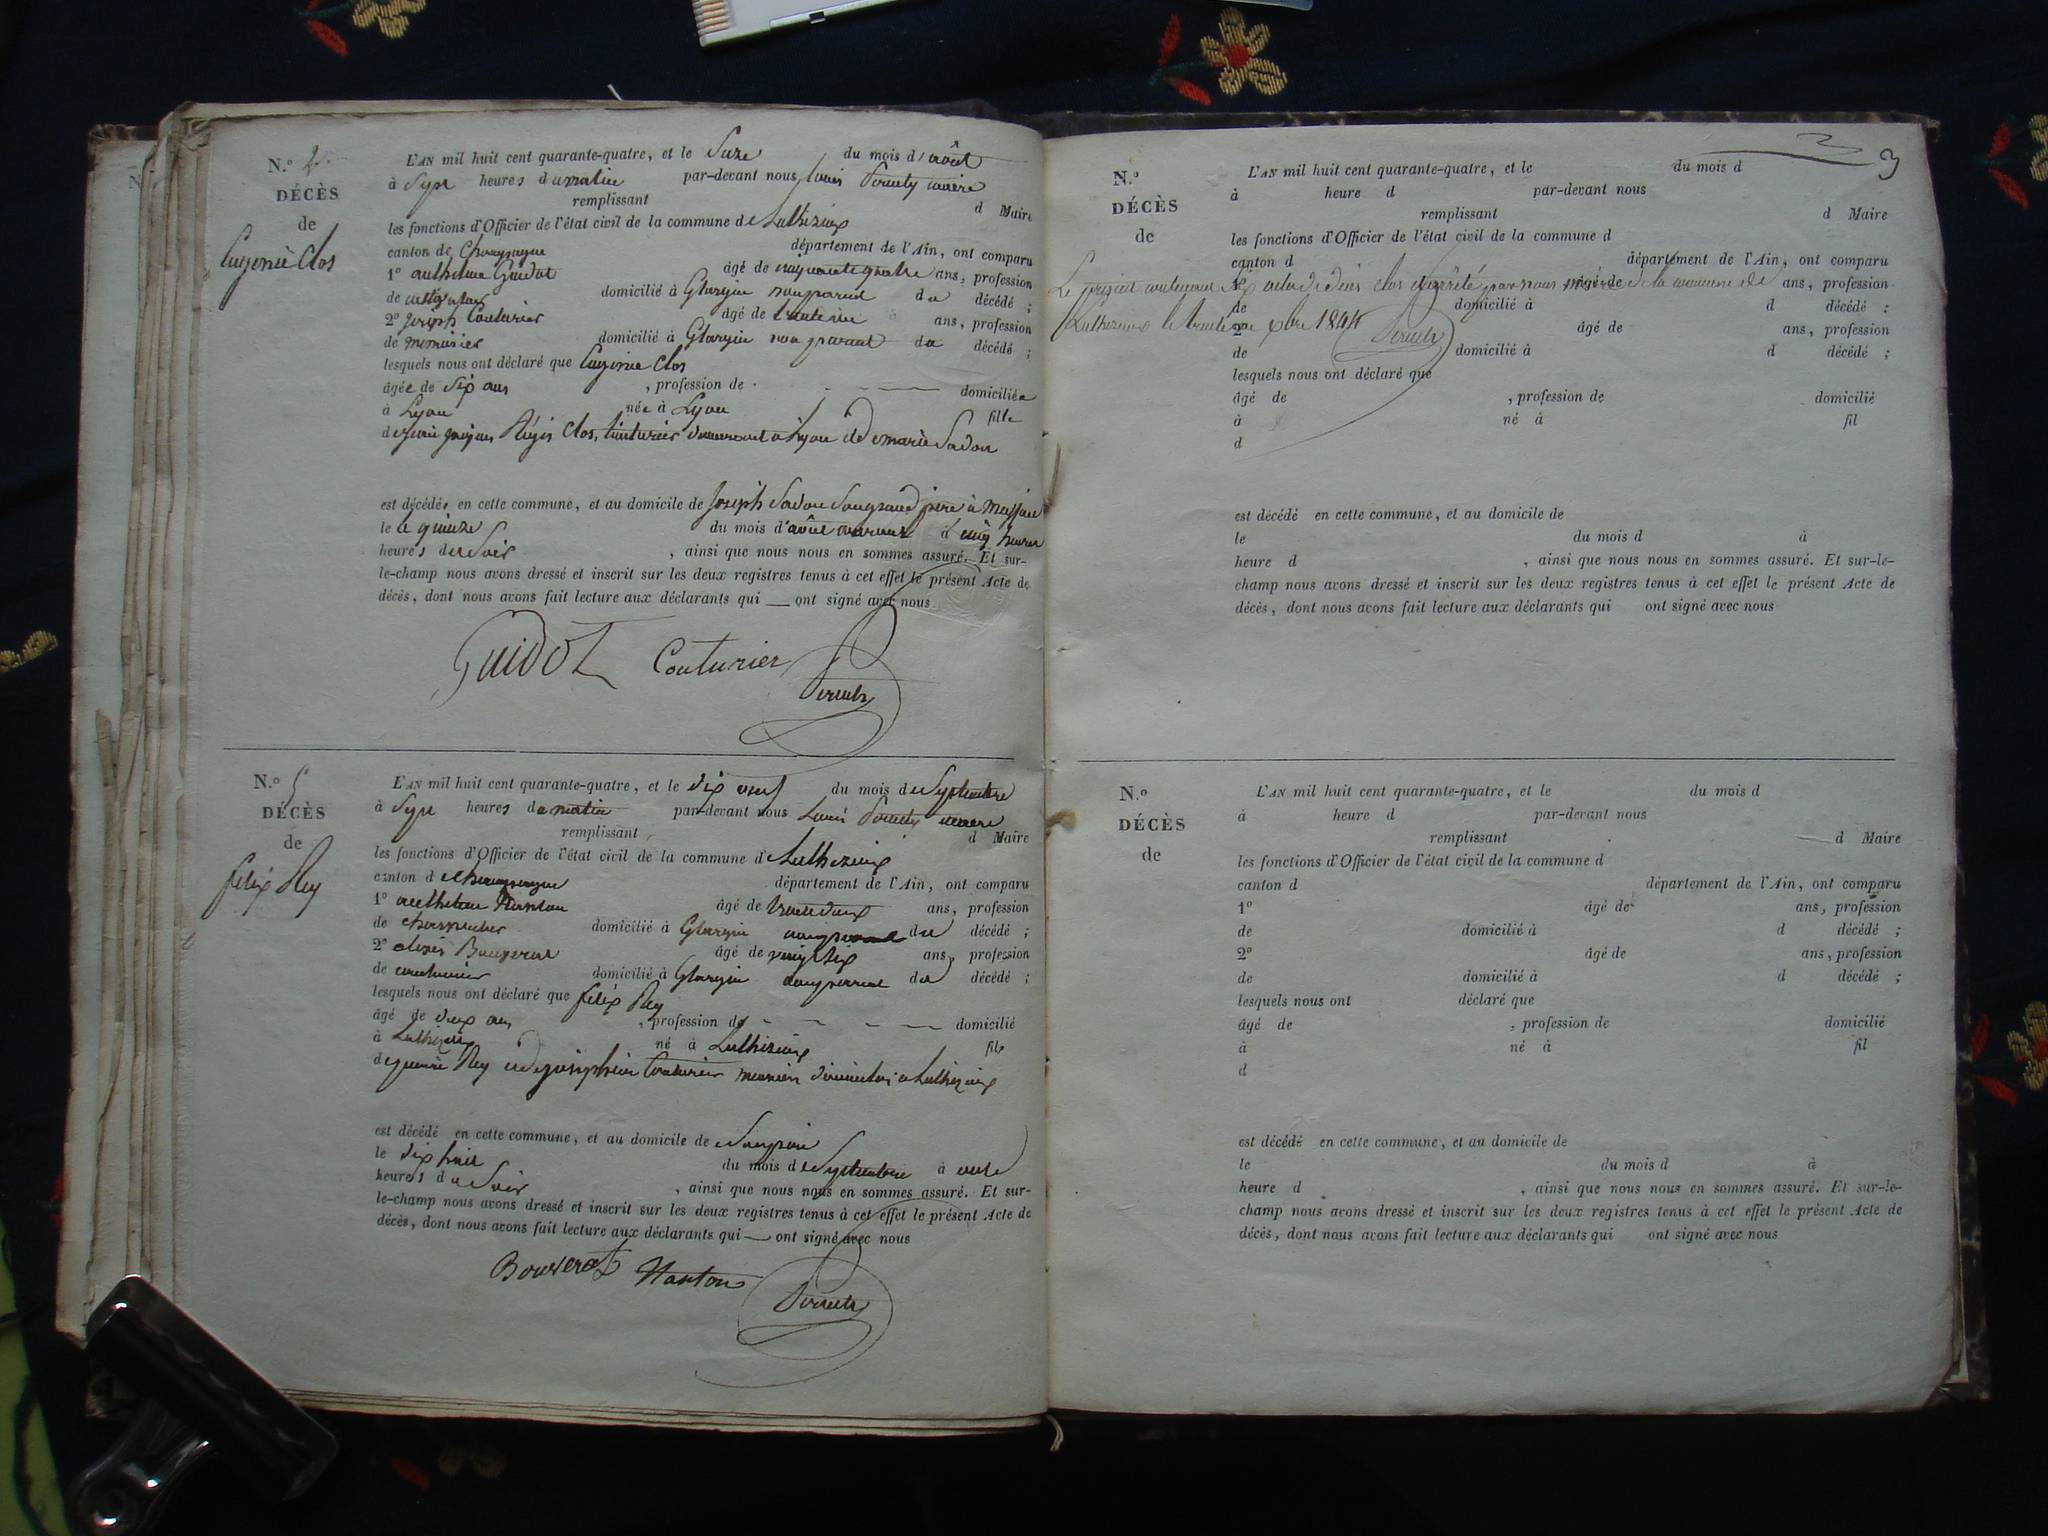 N.o 4.
DÉCÈS
de
Eugénie Clos
L'AN mil huit cent quarante-quatre, et le Seize du mois d'août
à Sept heures du matin par-devant nous Louis
remplissant d Maire
les fonctions d'Officier de l'état civil de la commune de Luthézieux
canton de Champagne département de l'Ain, ont comparu
1o anthelme Guidot âgé de cinquante quatre ans, profession
de domicilié à non parent du décédé ;
2o joseph Couturier âgé de ans, profession
de menuisier domicilié à non parent du décédé ;
lesquels nous ont déclaré que Eugénie Clos
âgée de six ans , profession de domiciliée
à Lyon née à Lyon fille
de Régis Clos, teinturier demeurant à Lyon et de marie
est décédée en cette commune, et au domicile de joseph
le le quinze du mois d'août courant à cinq heures
heures du Soir , ainsi que nous nous en sommes assuré. Et sur-
le-champ nous avons dressé et inscrit sur les deux registres tenus à cet effet le présent Acte de
décès, dont nous avons fait lecture aux déclarants qui — ont signé avec nous
GUIDOT Couturier
N.o 5
DÉCÈS
de
félix Rey
L'AN mil huit cent quarante-quatre, et le dix neuf du mois de Septembre
à Sept heures du matin par-devant nous Louis
remplissant d Maire
les fonctions d'Officier de l'état civil de la commune de Luthézieux
canton de Champagne département de l'Ain, ont comparu
1o anthelme âgé de trente deux ans, profession
de charpentier domicilié à non parent du décédé ;
2o alexis Bouverat âgé de vingt six ans, profession
de domicilié à non parent du décédé ;
lesquels nous ont déclaré que félix Rey
âgé de deux ans , profession de domicilié
à Luthézieux né à Luthézieux fils
de Rey et de josephine Couturier à Luthézieux
est décédé en cette commune, et au domicile de
le dix huit du mois de Septembre à onze
heures du Soir , ainsi que nous nous en sommes assuré. Et sur-
le-champ nous avons dressé et inscrit sur les deux registres tenus à cet effet le présent Acte de
décès, dont nous avons fait lecture aux déclarants qui — ont signé avec nous
Bouverat
3
N.o
DÉCÈS
de
L'AN mil huit cent quarante-quatre, et le du mois d
à heure d par-devant nous
remplissant d Maire
les fonctions d'Officier de l'état civil de la commune d
canton d département de l'Ain, ont comparu
Le présent contenant actes de décès clos et arrêté par nous maire de la commune de
1o âgé de ans, profession
de domicilié à d décédé ;
Luthézieux le trente un Xbre 1844
2o âgé de ans, profession
de domicilié à d décédé ;
lesquels nous ont déclaré que
âgé de , profession de domicilié
à né à fil
d
est décédé en cette commune, et au domicile de
le du mois d à
heure d , ainsi que nous nous en sommes assuré. Et sur-le-
champ nous avons dressé et inscrit sur les deux registres tenus à cet effet le présent Acte de
décès, dont nous avons fait lecture aux déclarants qui ont signé avec nous
N.o
DÉCÈS
de
L'AN mil huit cent quarante-quatre, et le du mois d
à heure d par-devant nous
remplissant d Maire
les fonctions d'Officier de l'état civil de la commune d
canton d département de l'Ain, ont comparu
1o âgé de ans, profession
de domicilié à d décédé ;
2o âgé de ans, profession
de domicilié à d décédé ;
lesquels nous ont déclaré que
âgé de , profession de domicilié
à né à fil
d
est décédé en cette commune, et au domicile de
le du mois d à
heure d , ainsi que nous nous en sommes assuré. Et sur-le-
champ nous avons dressé et inscrit sur les deux registres tenus à cet effet le présent Acte de
décès, dont nous avons fait lecture aux déclarants qui ont signé avec nous